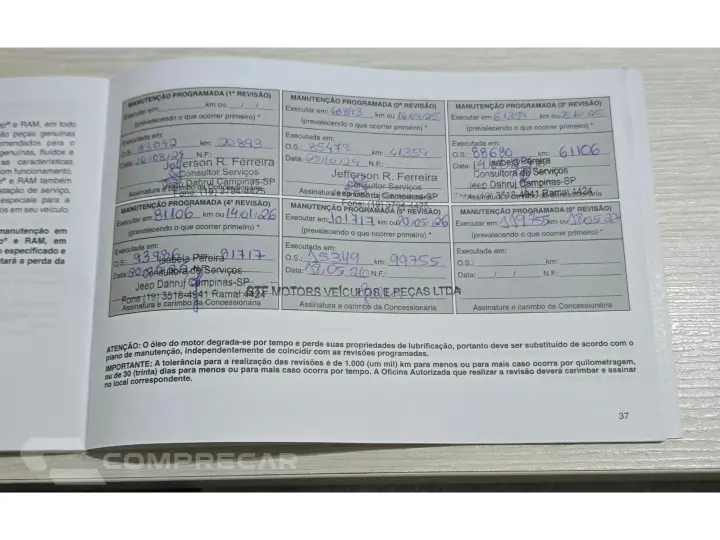 op® e RAM, em todo
ão peças genuínas
mendados para o
genuínas, fluidos e
as características
om funcionamento.
p® e RAM também
stação de serviço,
especiais para a
os em seu veículo.
manutenção em
o® e RAM, em
especificado e
tará a perda da
MANUTENÇÃO PROGRAMADA (1ª REVISÃO)
Executar em: km ou / /
(prevalecendo o que ocorrer primeiro) *
Executada em:
O.S.: 83092 km: 20893
Data: N.F.:
Jefferson R. Ferreira
Consultor Serviços
Jeep Dahruj Campinas-SP
Assinatura e carimbo da Concessionária
MANUTENÇÃO PROGRAMADA (2ª REVISÃO)
Executar em: 40893 km ou
(prevalecendo o que ocorrer primeiro) *
Executada em:
O.S.: 85473 km: 41359
Data: 25/10/24 N.F.:
Jefferson R. Ferreira
Consultor Serviços
Jeep Dahruj Campinas-SP
Assinatura e carimbo da Concessionária
MANUTENÇÃO PROGRAMADA (3ª REVISÃO)
Executar em: km ou
(prevalecendo o que ocorrer primeiro) *
Executada em:
O.S.: 88680 km: 61106
Data:
Isabela Pereira
Consultora de Serviços
Jeep Dahruj Campinas-SP
3518-4941 Ramal 4424
Assinatura e carimbo da Concessionária
MANUTENÇÃO PROGRAMADA (4ª REVISÃO)
Executar em: 81106 km ou 14/01/26
(prevalecendo o que ocorrer primeiro) *
Executada em:
O.S.: 93986 km: 81717
Data:
Isabela Pereira
Consultora de Serviços
Jeep Dahruj Campinas-SP
Fone (19) 3518-4941 Ramal 4424
Assinatura e carimbo da Concessionária
MANUTENÇÃO PROGRAMADA (5ª REVISÃO)
Executar em: 101717 km ou 20.05.26
(prevalecendo o que ocorrer primeiro) *
Executada em:
O.S.: 15349 km: 99755
Data: 18.05.26 N.F.:
GTF MOTORS VEÍCULOS E PEÇAS LTDA
Assinatura e carimbo da Concessionária
MANUTENÇÃO PROGRAMADA (6ª REVISÃO)
Executar em: 119755 km ou 18.05.27
(prevalecendo o que ocorrer primeiro) *
Executada em:
O.S.: km:
Data: / / N.F.:
Assinatura e carimbo da Concessionária
ATENÇÃO: O óleo do motor degrada-se por tempo e perde suas propriedades de lubrificação, portanto deve ser substituído de acordo com o
plano de manutenção, independentemente de coincidir com as revisões programadas.
IMPORTANTE: A tolerância para a realização das revisões é de 1.000 (um mil) km para menos ou para mais caso ocorra por quilometragem,
ou de 30 (trinta) dias para menos ou para mais caso ocorra por tempo. A Oficina Autorizada que realizar a revisão deverá carimbar e assinar
no local correspondente.
37
COMPRECAR